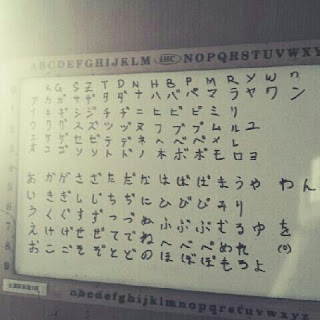 ABCDEFGHIJKLM ABC NOPQRSTUVWXY
K G S Z T D N H B P M R Y W n
ア カ ガ サ ザ タ ダ ナ ハ バ パ マ ラ ヤ ワ ン
イ キ ギ シ ジ チ ヂ ニ ヒ ビ ピ ミ リ
ウ ク グ ス ズ ツ ヅ ヌ フ ブ プ ム ル ユ
エ ケ ゲ セ ゼ テ デ ネ ヘ ベ ペ メ レ
オ コ ゴ ソ ゾ ト ド ノ ホ ボ ポ モ ロ ヨ
あ か が さ ざ た だ な は ば ぱ ま ら や わ ん
い き ぎ し じ ち ぢ に ひ び ぴ み り
う く ぐ す ず つ づ ぬ ふ ぶ ぷ む る ゆ を
え け げ せ ぜ て で ね へ べ ぺ め れ (o)
お こ ご そ ぞ と ど の ほ ぼ ぽ も ろ よ
abcdefghijklm nopqrstuvwxyz